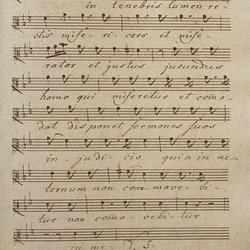 in tenebris lumen re-
ctis mise- ri- cors et mise-
rator et justus jucundus
homo qui miseretur et como-
dat disponet sermones suos
in- judi- cio quia in ae-
ternum non com movebi-
tur non como- vebitur
in me-